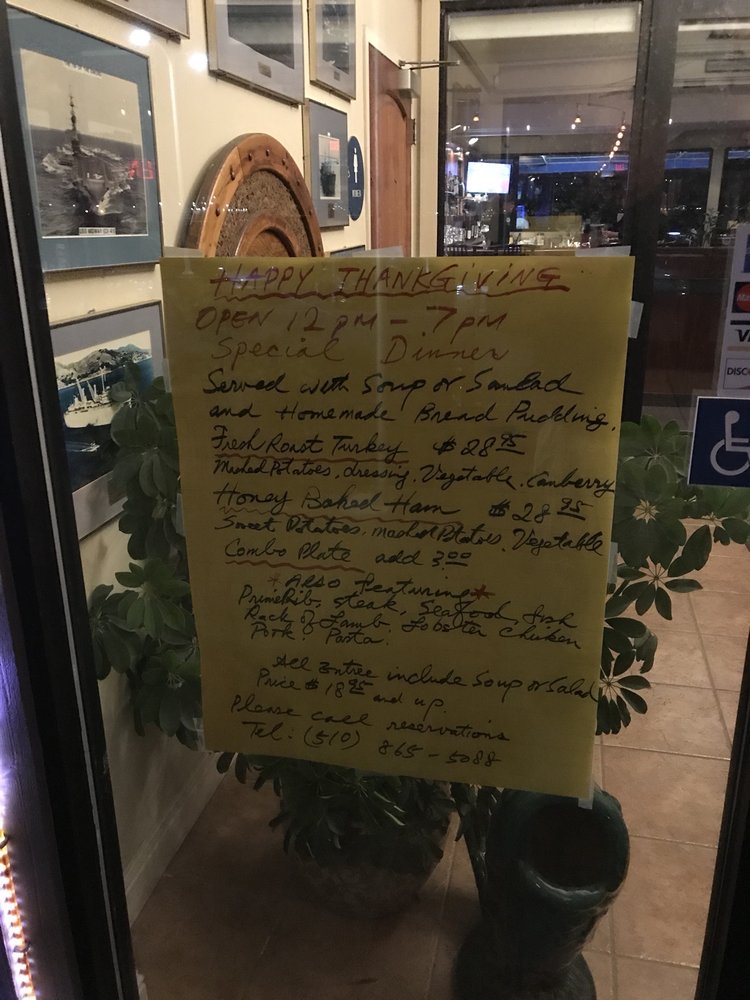 HAPPY THANKGIVING
OPEN 12 PM - 7 PM
Special Dinner
Served with Soup or Sanlad
and Homemade Bread Pudding.
Fresh Roast Turkey $28.95
Mashed Potatoes, dressing, Vegetable, Canberry
Honey Baked Ham $28.95
Sweet Potatoes, mashed Potatoes, Vegetable
Combo Plate add 3.00
*Also featuring*
PrimeRib, steak, Seafood, fish
Rack of Lamb, Lobster Chicken
Pork. Pasta.
All Entree include Soup or Salad
Price $18.95 and up
Please call reservations
Tel: (510) 865-5088
WOMEN
DISCO